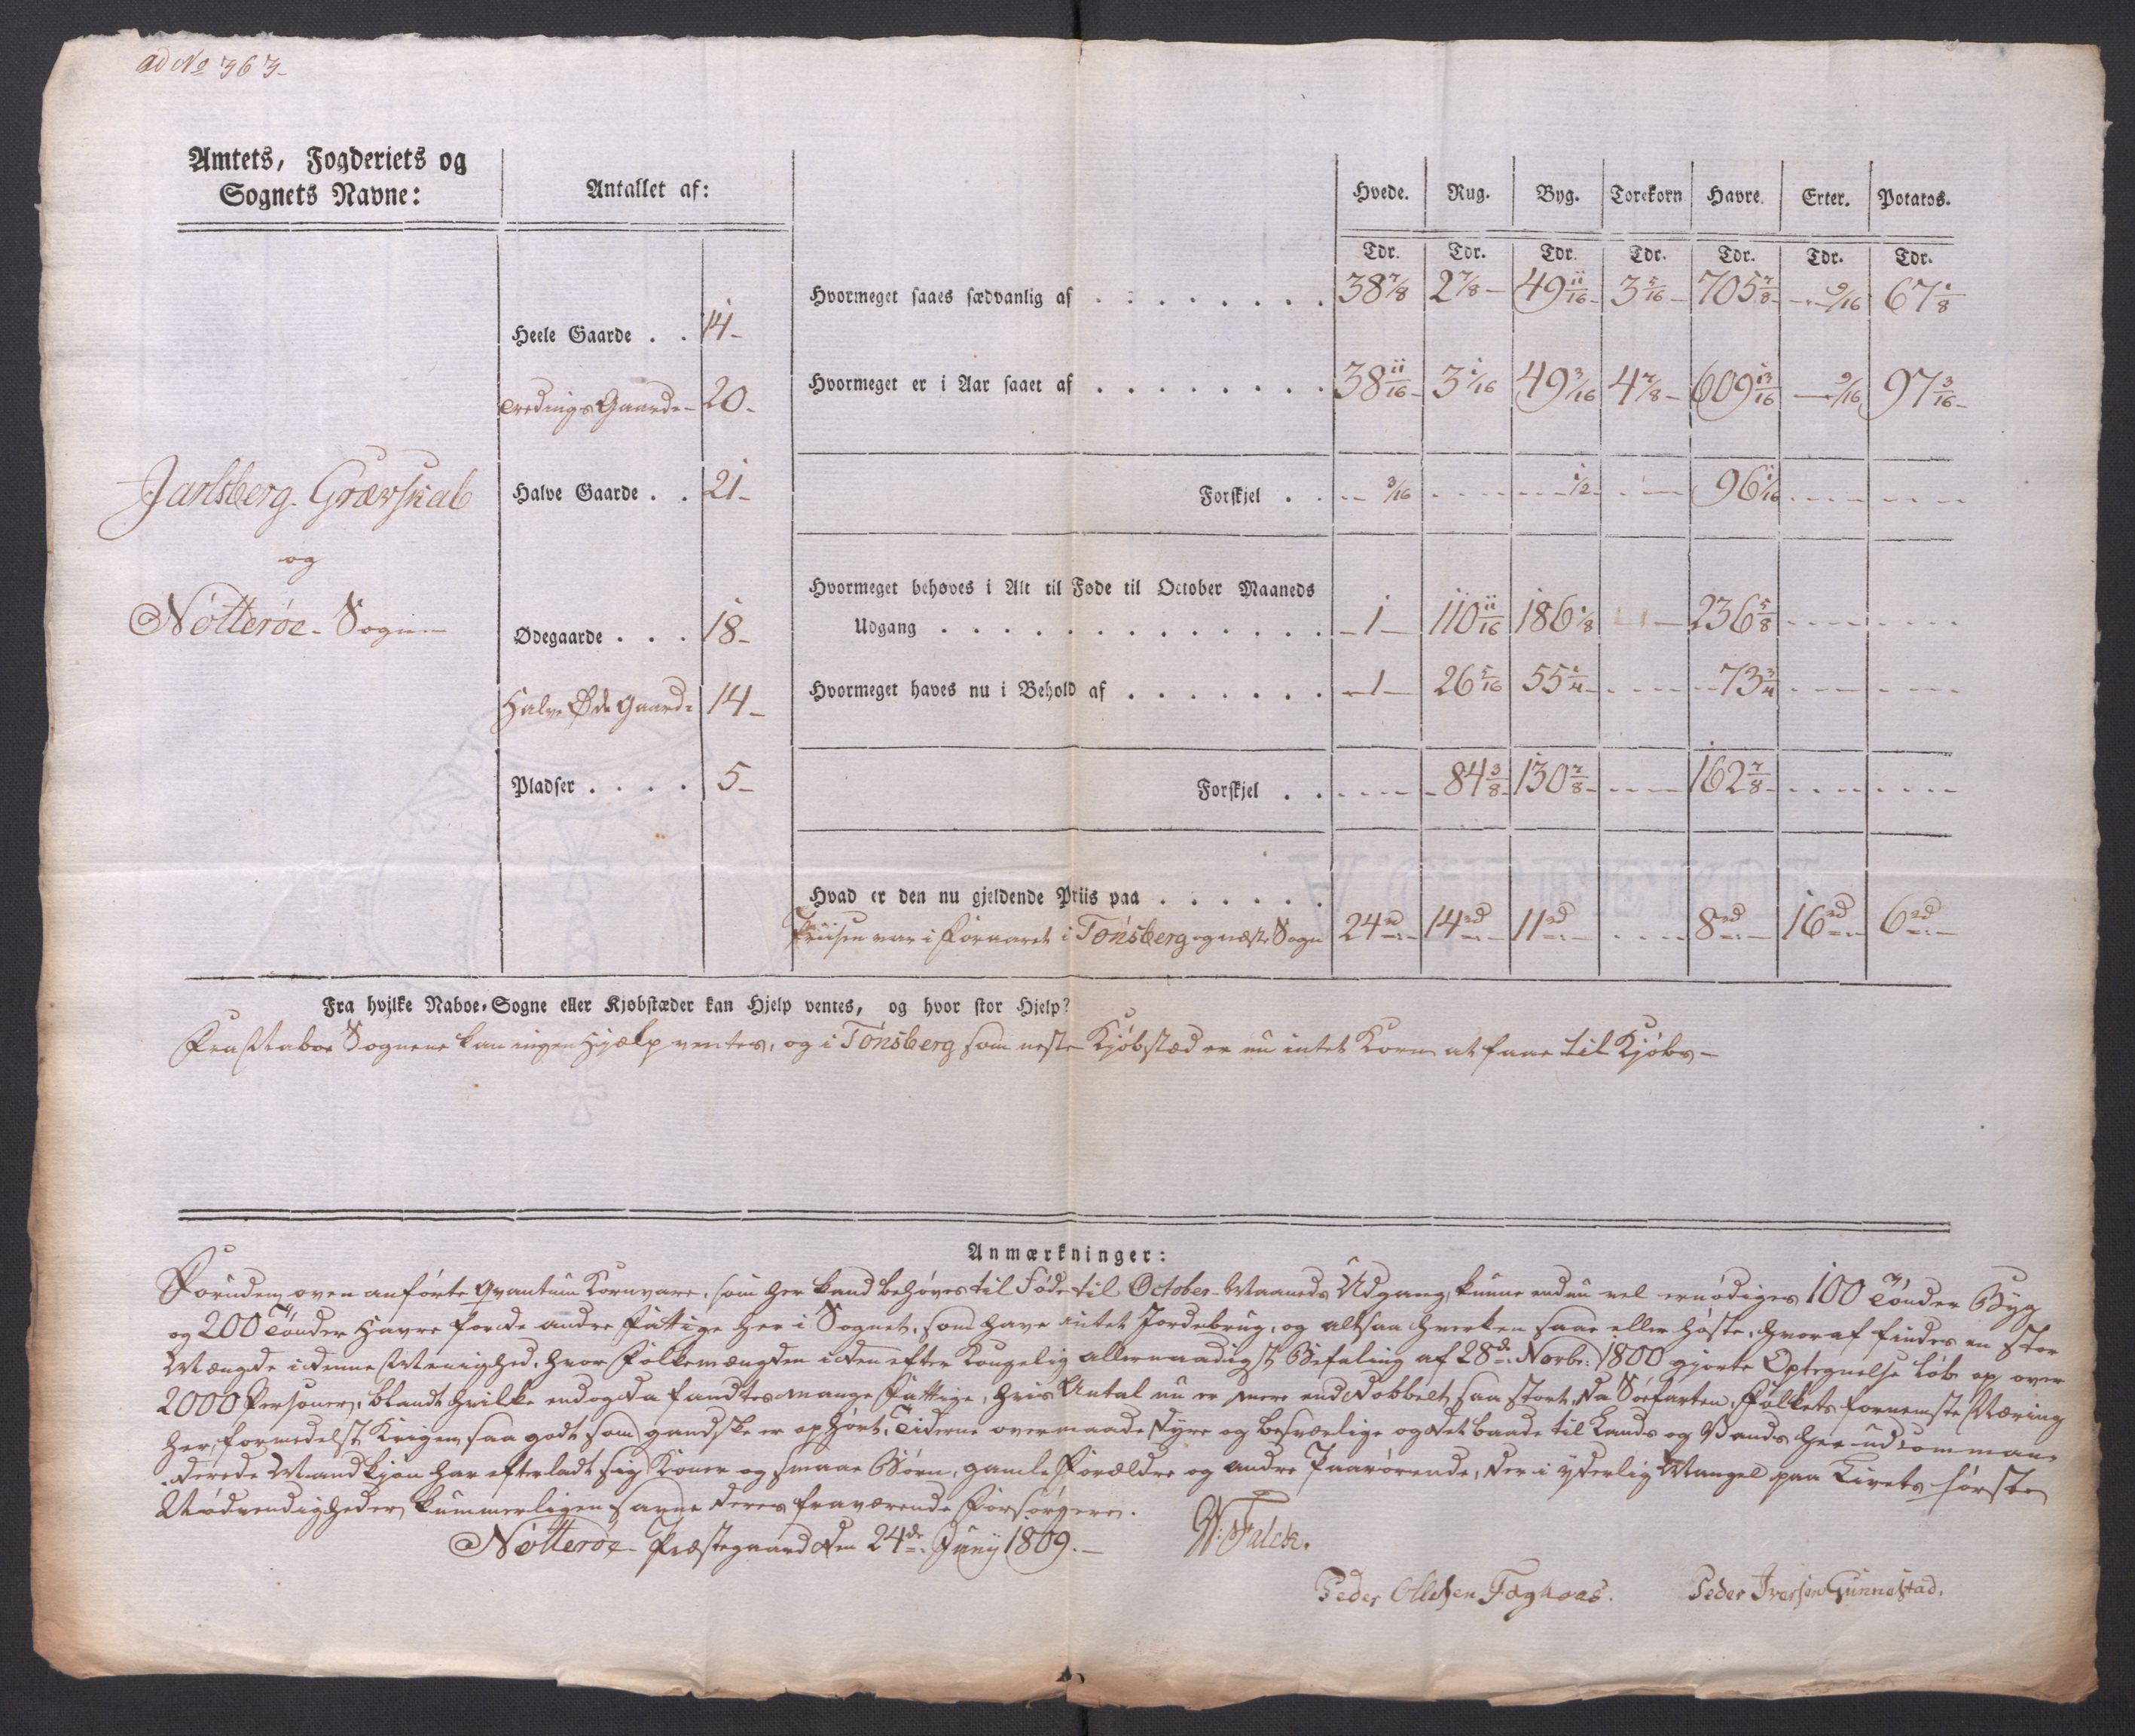 ad No 363-
Amtets, Fogderiets og
Sognets Navne:
Antallet af:
Hvede. Rug. Byg. Torekorn Havre. Erter. Potatos.
Tdr. Tdr. Tdr. Tdr. Tdr. Tdr. Tdr.
Hvormeget saaes sædvanlig af . . . . . . . . 38 7/8 2 7/8 - 49 11/16 - 3 5/16 - 705 7/8 - -.- 9/16 67 1/8
Heele Gaarde . . 14-
Hvormeget er i Aar saaet af . . . . . . . . 38 11/16 - 3 1/16 49 3/16 4 7/8 - 609 13/16 - 9/16 97 3/16 -
Tredings Gaarde- 20-
Jarlsberg- Grævskab
Halve Gaarde . . 21-
Forskjel . . -- 3/16 - - - - - - 1/2 - - - - 96 1/16 - - - - - - - -
og
Nötteröe- Sogn-
Hvormeget behøves i Alt til Føde til October Maaneds
Udgang . . . . . . . . . . . . . -1- 110 11/16 186 1/8 - 236 5/8 - - - - - - - -
Ødegaarde . . . 18-
Hvormeget haves nu i Behold af . . . . . . . -1- 26 5/16 55 1/4 - - - - - - 73 3/4 - - - - - - - -
Halve Øde Gaarde 14-
Pladser . . . . 5-
Forskjel . . - - - - - 84 3/8 - 130 7/8 - - - - 162 7/8 - - - - - - - -
Hvad er den nu gjeldende Priis paa . . . . . .
Priisen var i Foraaret i Tönsberg og næste Sogn 24 rd 14 rd 11 rd - - - - 8 rd 16 rd 6 rd
Fra hvilke Naboe-Sogne eller Kjøbstæder kan Hjelp ventes, og hvor stor Hjelp?
Fra Naboe Sognene kan ingen Hjælp ventes, og i Tönsberg som neste Kjöbstæd er nu intet Korn at faae til Kjöbs-
Anmærkninger:
Foruden oven anförte Qvantum Kornvare, som her kand behöves til Föde til October-Maaneds Udgang, kunne endnu vel ernödiges 100 Tönder Byg
og 200 Tönder Havre for de andre Fattige her i Sognet, som have intet Jordebrug, og altsaa hverken saae eller höste, hvoraf findes en stor
Mængde i denne Menighed, hvor Folkemængden i den efter Kongelig allernaadigst Befaling af 28de Novbr: 1800 gjorte Optegnelse löb op over
2000 Personer, blandt hvilke endog da fandtes mange Fattige, hvis Antal nu er mere end dobbelt saa stort, da Söefarten, Folkets fornemste Næring
her, formedelst Krigen saa godt som gandske er ophört, Tiderne overmaade dyre og besværlige og det baade til Lands og Vands her udcomman-
derede Mandkjön har efterladt sig Koner og smaae Börn, gamle Forældre og andre Paarörende, der i yderlig Mangel paa Livets förste
Nödvendigheder kummerligen savne deres fraværende Forsörgere.
Nötteröe- Præstegaard den 24de Junij 1809.-
Falck.
Peder Ollesen
Peder Iversen Gunnestad.